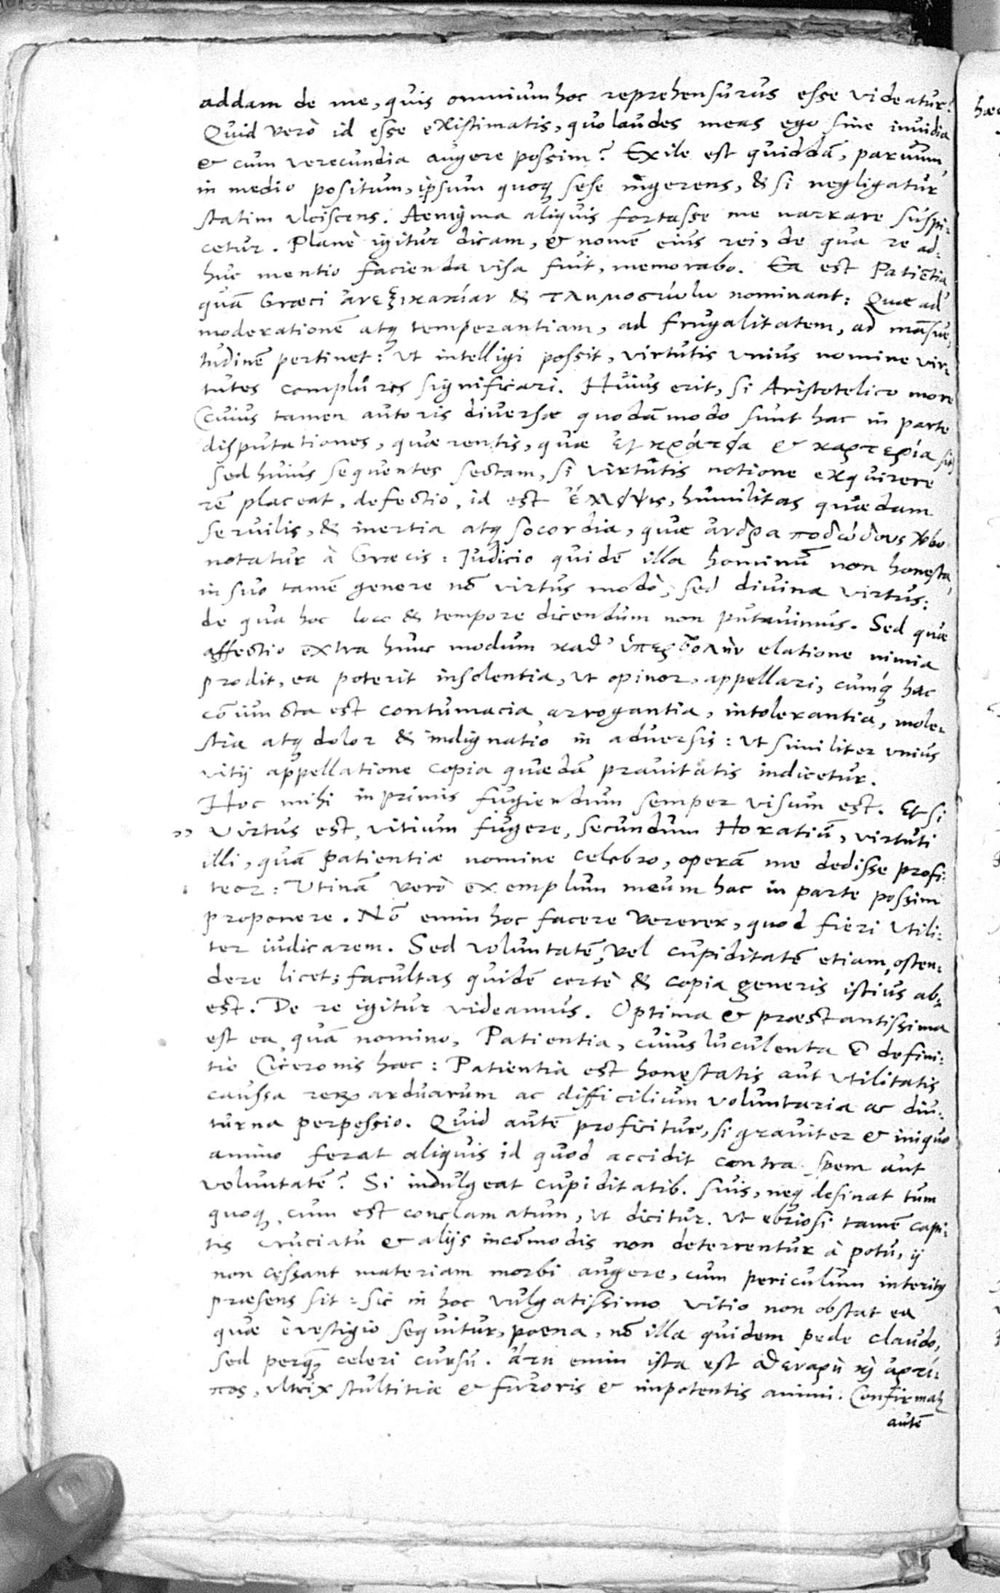 addam de me, quis omnium hoc reprehensurus esse videatur?
Quid verò id esse existimatis, quo laudes meas ego sine invidia
& cum verecundia augere possim? Exile est quiddã, parvum,
in medio positum, ipsum quoq sese ingerens, & si negligatur
statim ulciscens. Aenigma aliquis fortasse me narrare suspi-
cetur. Planè igitur dicam, & nomẽ eius rei, de qua re ad-
huc mentio facienda visa fuit, memorabo. Ea est Patiẽtia
quã Græci ἀνεξικακίαν & τλημοσύνην nominant: Quæ ad
moderationẽ atq temperantiam, ad frugalitatem, ad mãsue-
tudinẽ pertinet: Ut intelligi possit, virtutis unius nomine vir-
tutes complures significari. Huius erit, si Aristotelico more
(cuius tamen autoris diversæ quodãmodo sunt hac in parte
disputationes, quærentis, quæ & καρτερία sit)
Sed huius sequentes sectam, si virtutis notione exquirere
rẽ placeat, defectio, id est ἔλλειψις, humilitas quædam
servilis, & inertia atq socordia, quæ
notatur à Græcis: Judicio quidẽ illa hominũ non honesta,
in suo tamẽ genere nõ virtus modò, sed divina virtus:
de qua hoc loco & tempore dicendum non putavimus. Sed quæ
affectio extra hunc modum καθ' ὑπερβολὴν elatione nimia
prodit, ea poterit insolentia, ut opinor, appellari, cumq hac
cõiuncta est contumacia, arrogantia, intolerantia, mole-
stia atq dolor & indignatio in adversis: Ut similiter unius
vitij appellatione copia quædã pravitatis indicetur.
Hoc mihi in primis fugiendum semper visum est. Et si
virtus est, vitium fugere, secundum Horatiũ, virtuti
illi, quã patientiæ nomine celebro, operã me dedisse profi-
teor: Utinã verò exemplum meum hac in parte possim
proponere. Nõ enim hoc facere vererer, quod fieri utili-
ter iudicarem. Sed voluntatẽ, vel cupiditatẽ etiam osten-
dere licet; facultas quidẽ certè & copia generis istius ab-
est. De re igitur videamus. Optima & præstantissima
est ea, quã nomino, Patientia, cuius luculenta ẽ defini-
tio Ciceronis hæc: Patientia est honestatis aut utilitatis
caussa rerum arduarum ac difficilium voluntaria ac diu-
turna perpessio. Quid autẽ proficitur, si graviter & iniquo
animo ferat aliquis id quod accidit contra spem aut
voluntatẽ? Si indulgeat cupiditatib. suis, neq desinat tum
quoq, cum est conclamatum, ut dicitur. Ut ebriosi tamẽ capi-
tis cruciatu & alijs incõmodis non deterrentur à potu, ij
non cessant materiam morbi augere, cum periculum interitus
præsens sit: sic in hoc vulgatissimo vitio non obstat ea
quæ è vestigio sequitur, poena, nõ illa quidem pede claudo,
sed perq celeri cursu. ἄτη enim ista est σθεναρή κὶ ἀρτί-
πος, ultrix stultitiæ & furoris & impotentis animi. Confirmat
autẽ